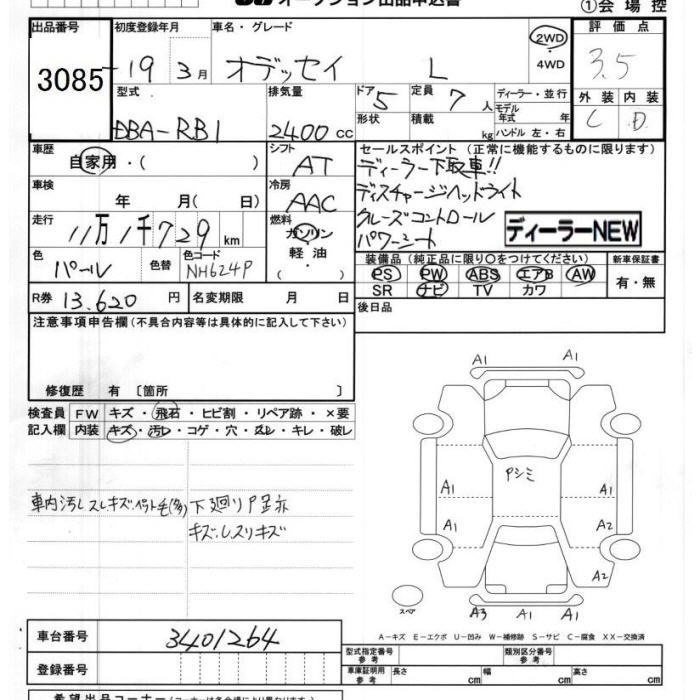 オークション出品申込書
①会場控
出品番号 初度登録年月 車名・グレード 評価点
3085 19 3月 オデッセイ L 2WD ・ 4WD 3.5
型式 排気量 ドア 5 定員 7人 ディーラー・並行 外装 内装
DBA-RB1 2400cc 形状 積載 kg モデル年式 年 ハンドル 左・右 C D
車歴 シフト セールスポイント (正常に機能するものに限ります)
自家用・( ) AT ディーラー下取車!!
車検 冷房 ディスチャージヘッドライト
年 月(日) AAC クルーズコントロール
走行 燃料 パワーシート
11万1千729km ガソリン・軽油・( ) ディーラーNEW
色 色替 色コード 装備品 (純正品に限り○をつけてください) 新車保証書
パール NH624P PS PW ABS エアB AW 有・無
SR ナビ TV カワ
R券 13.620円 名変期限 月 日 後日品
注意事項申告欄 (不具合内容等は具体的に記入して下さい)
修復歴 有 〔箇所 〕
検査員 FW キズ・飛石・ヒビ割・リペア跡・×要
記入欄 内装 キズ・汚レ・コゲ・穴・スレ・キレ・破レ
車内汚レスレキズ、ペット毛(多) 下廻り
キズ、レスリキズ
A1 A1
Pシミ
A1 A1
A1 A2
A2
スペア A3 A1 A1
A-キズ E-エクボ U-凹み W-補修跡 S-サビ C-腐食 XX-交換済
車台番号 3401264
型式指定番号 参考 類別区分番号 参考
登録番号 車庫証明用 参考 長さ cm 幅 cm 高さ cm
希望出品コーナー